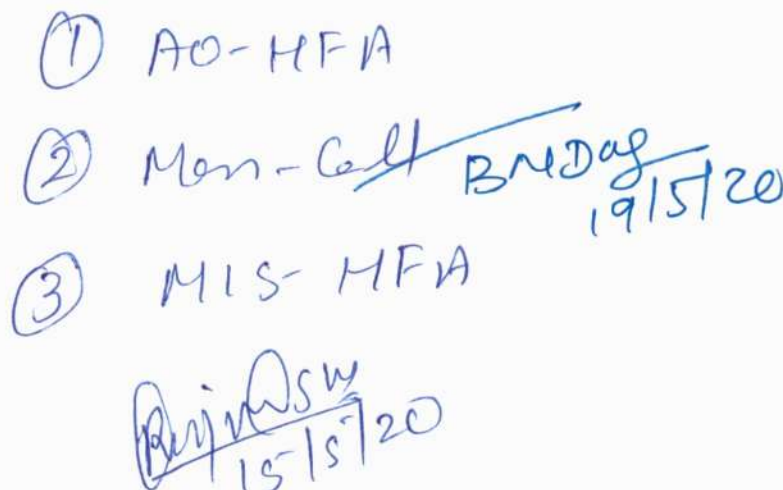 ① AO-HFA
② Mon-Cell
BMDas
19/5/20
③ MIS-HFA
15/5/20